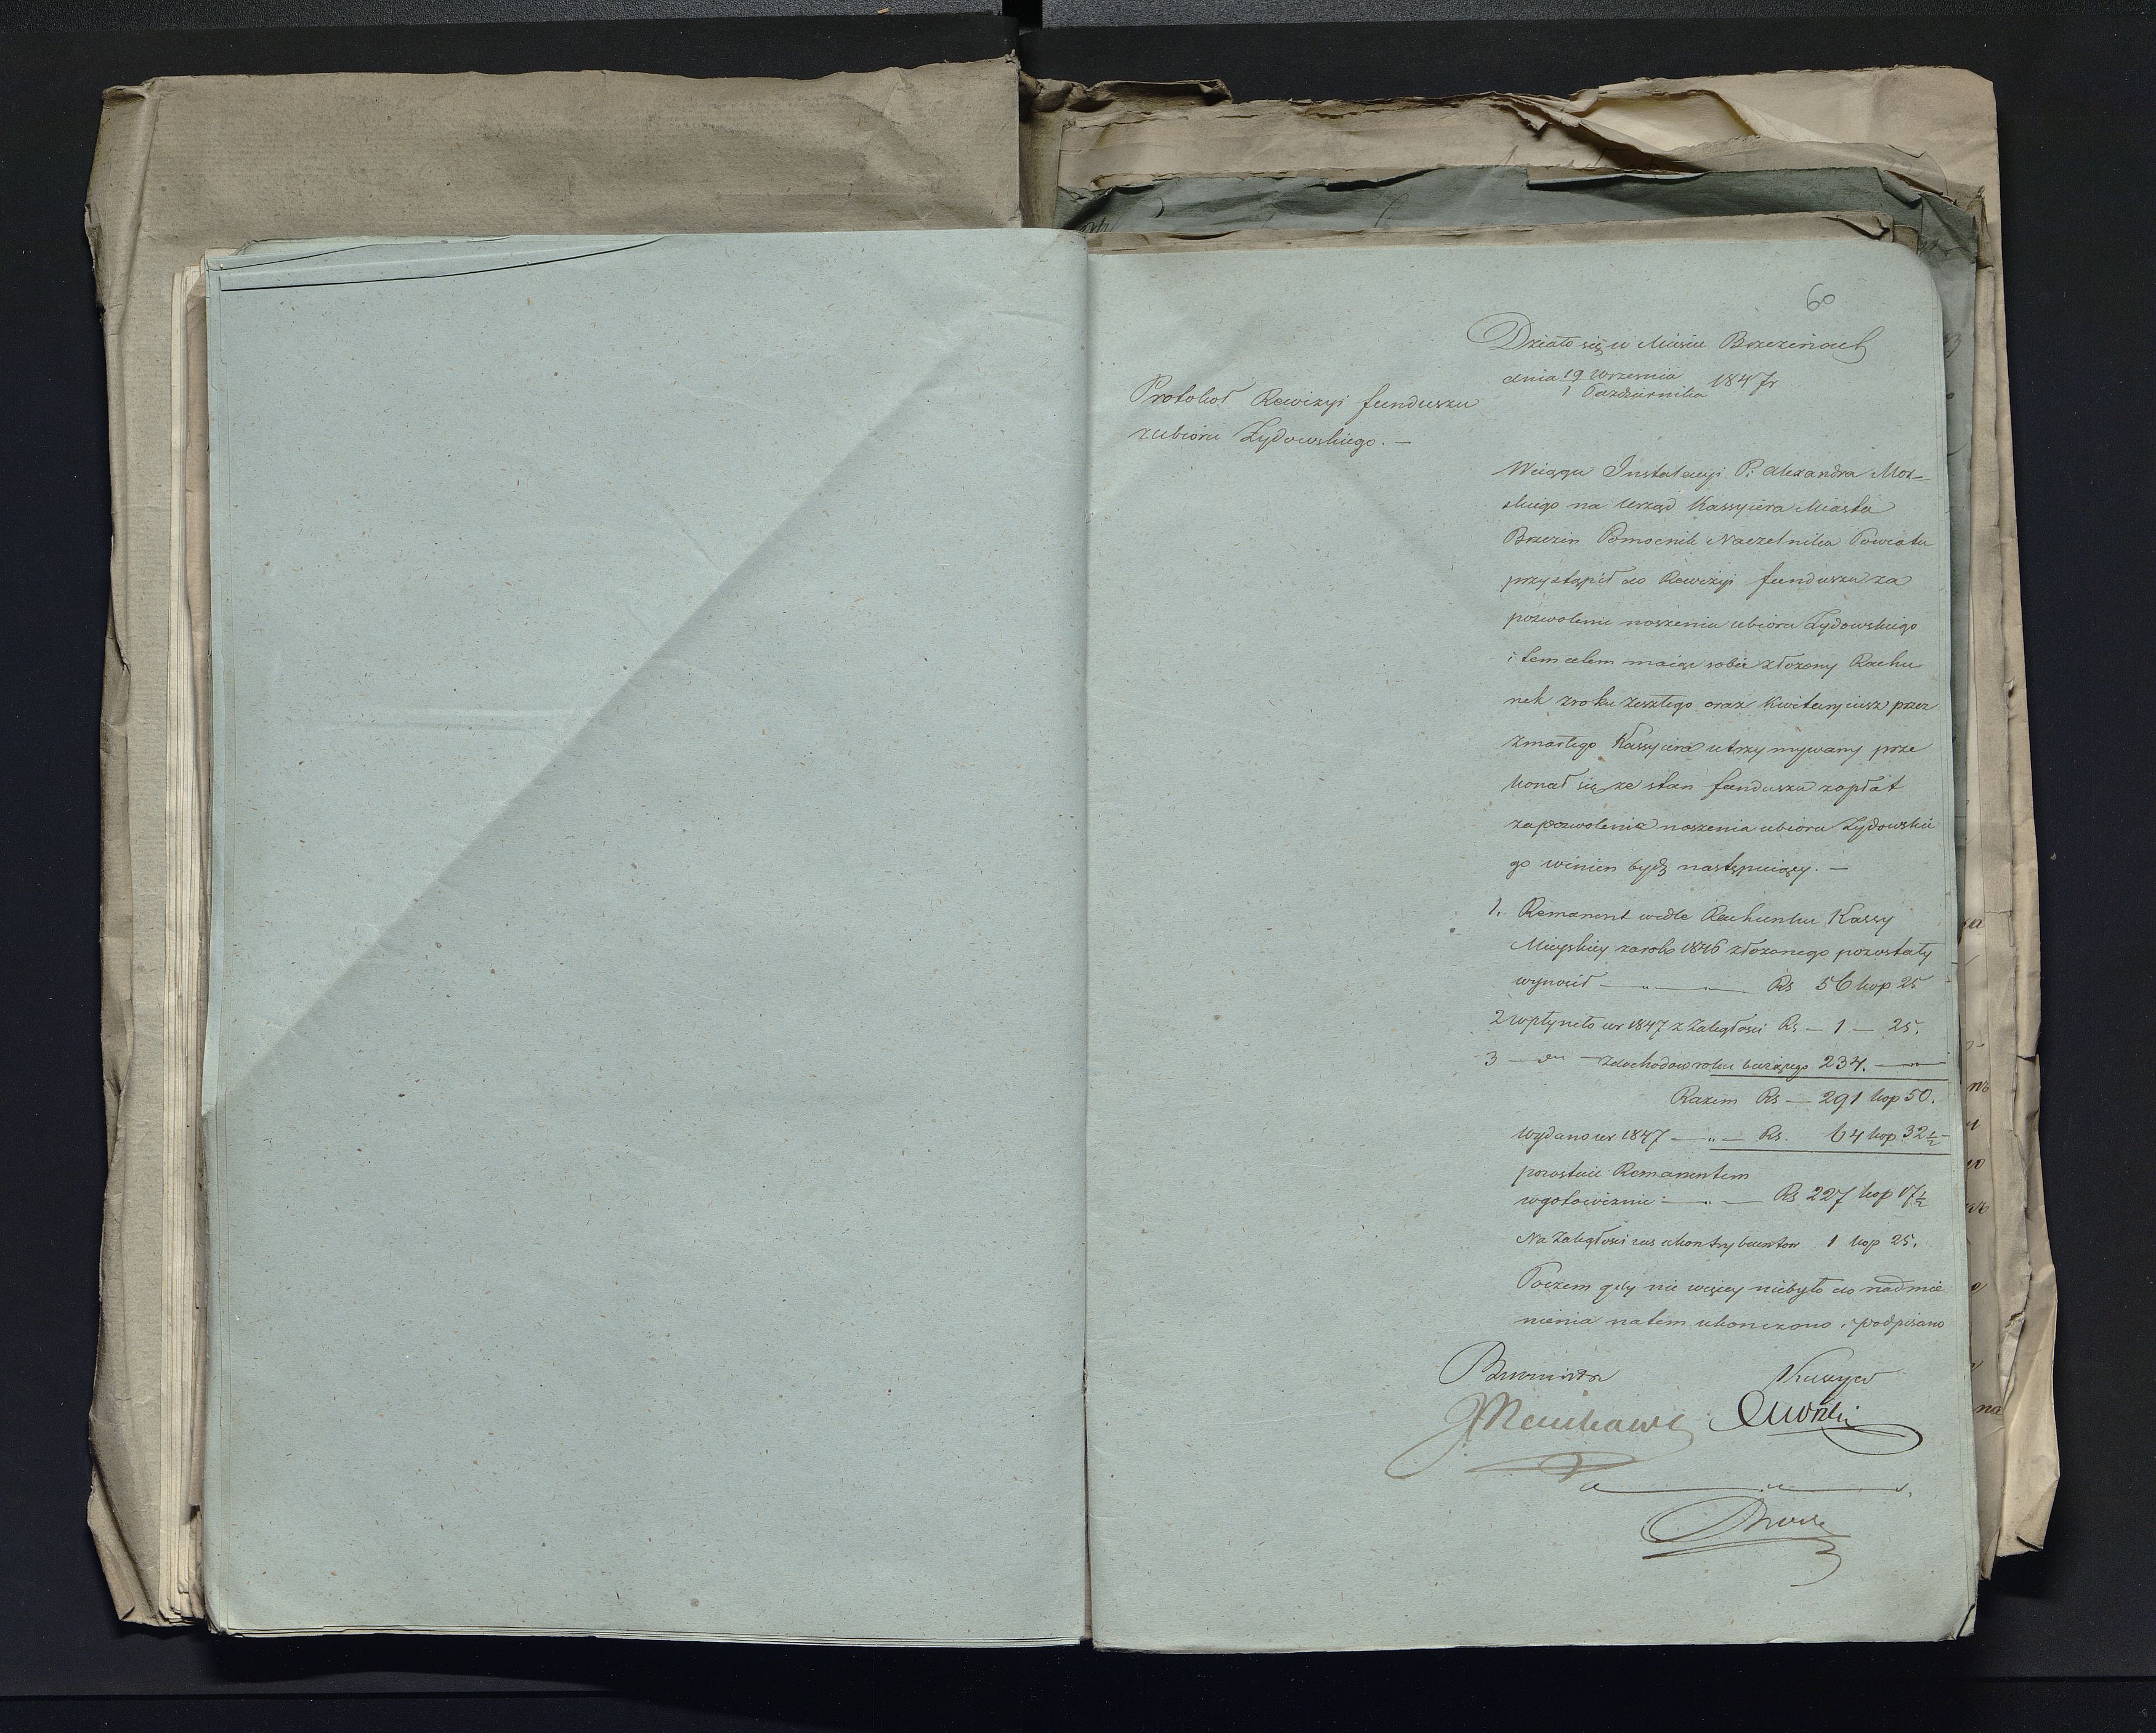 60
Działo się w Mieście Brzezinach
dnia 19 Września / 1 Października 1847 r
Protokoł Rewizyi funduszu
z ubioru Żydowskiego. —
W ciągu Instalacyi P. Alexandra Mor-
skiego na Urząd Kassyiera Miasta
Brzezin Pomocnik Naczelnika Powiatu
przystąpił do Rewizyi funduszu za
pozwolenie noszenia ubioru Żydowskiego
i tem celem maiąc sobie złożony Rachu
nek z roku zeszłego oraz Kwitaryiusz przez
zmarłego Kassyiera utrzymywany prze
konał się że stan funduszu z opłat
za pozwolenie noszenia ubioru Żydowskie
go winien bydź następuiący. —
1. Remanent wedle Rachunku Kassy
Mieyskiey za rok 1846 złożonego pozostały
wynosił — „ — „ — Rs 56 kop 25
2 wpłyneło w r 1847 z Zaległości Rs — 1 — 25.
3 — do — z dochodow roku bieżącego 234. — „ —
Razem Rs — 291 kop 50.
Wydano w r 1847 — „ — Rs. 64 kop 32½ —
pozostaie Remanentem
w gotowiznie — „ — Rs 227 kop 17½
Na Zaległości u kontrybuentow 1 kop 25.
Poczem gdy nic więcey niebyło do nadmie
nienia na tem ukonczono i podpisano
Burmistrz
Kassyer
Morski